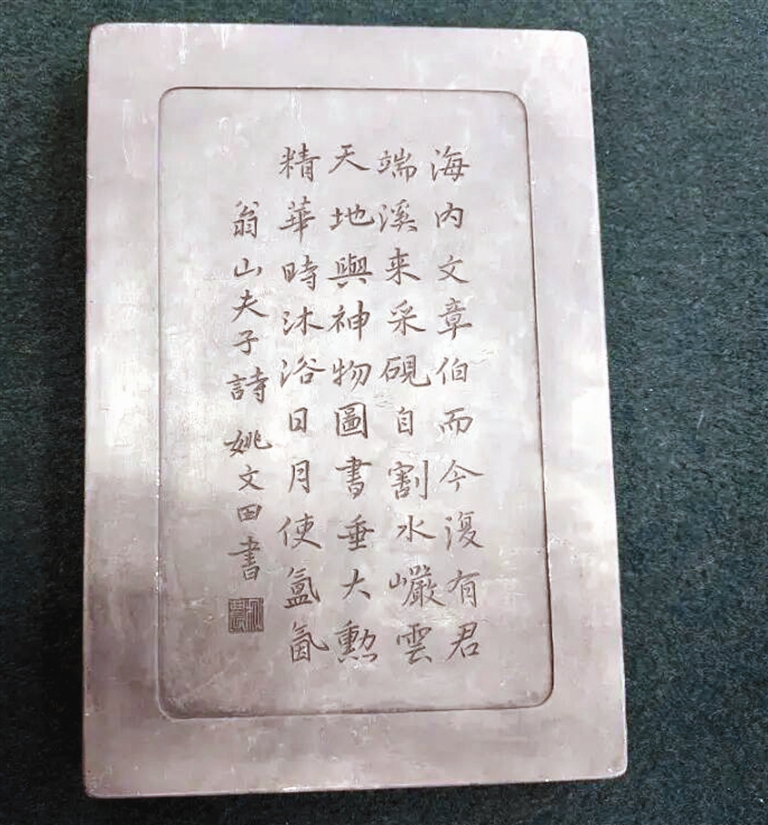 海内文章伯而今復有君
端溪来采硯自割水巗雲
天地與神物圖書垂大勲
精華時沐浴日月使氲氤
翁山夫子詩 姚文田書